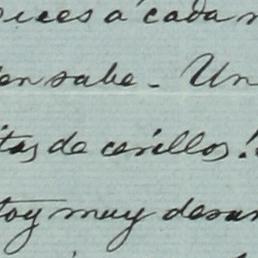 ices a cada
en sabe. - Un
itas de cerillos!
toy muy desan